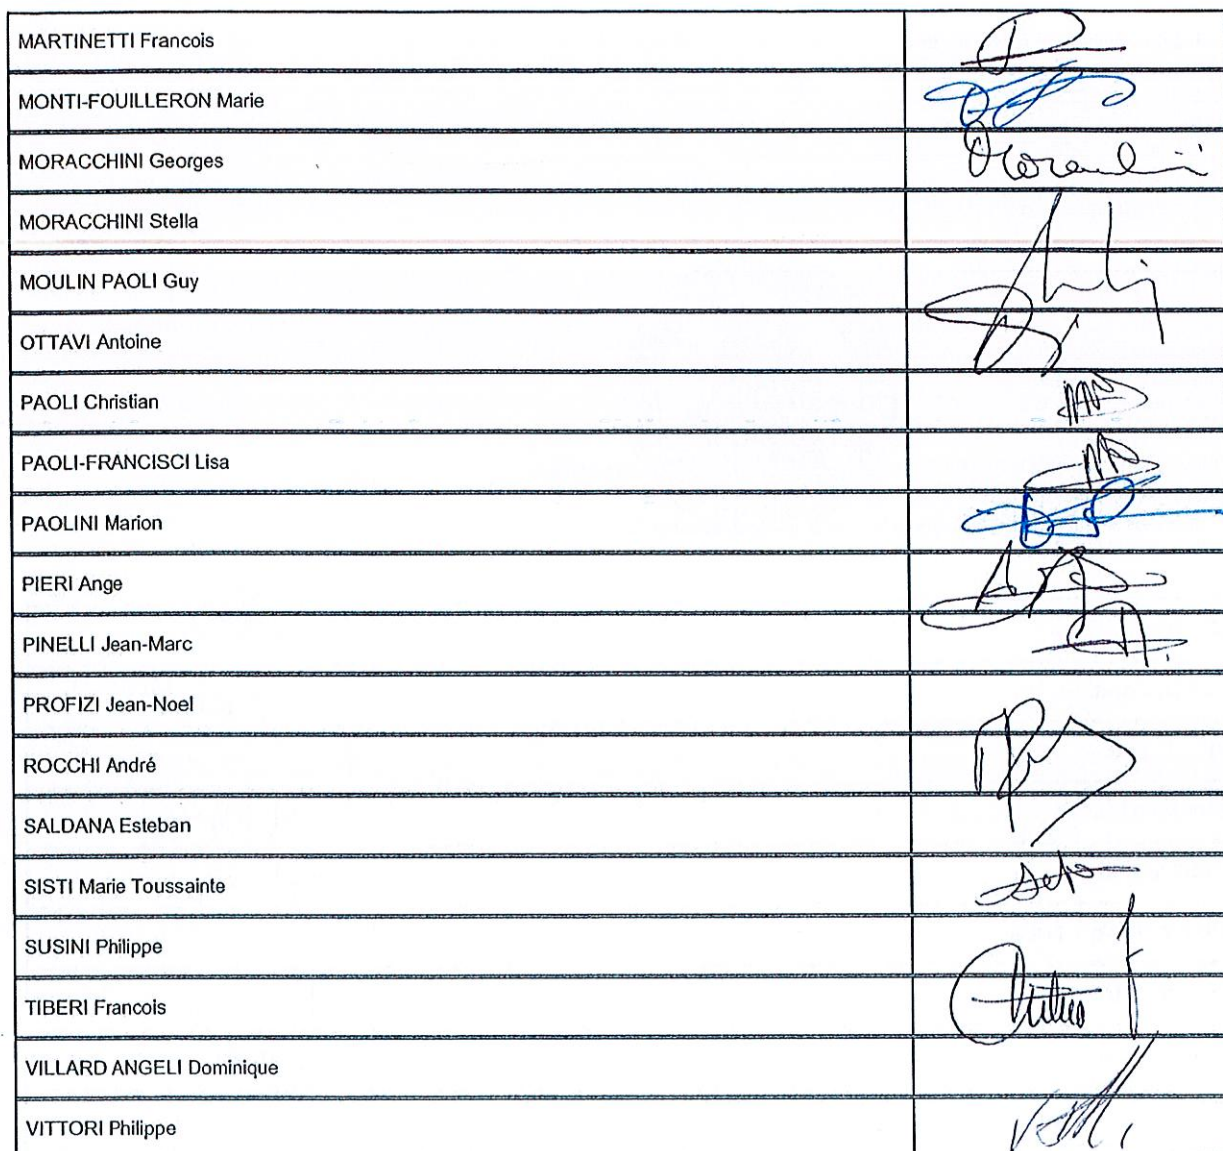 MARTINETTI Francois
MONTI-FOUILLERON Marie
MORACCHINI Georges
MORACCHINI Stella
MOULIN PAOLI Guy
OTTAVI Antoine
PAOLI Christian
PAOLI-FRANCISCI Lisa
PAOLINI Marion
PIERI Ange
PINELLI Jean-Marc
PROFIZI Jean-Noel
ROCCHI André
SALDANA Esteban
SISTI Marie Toussainte
SUSINI Philippe
TIBERI Francois
VILLARD ANGELI Dominique
VITTORI Philippe